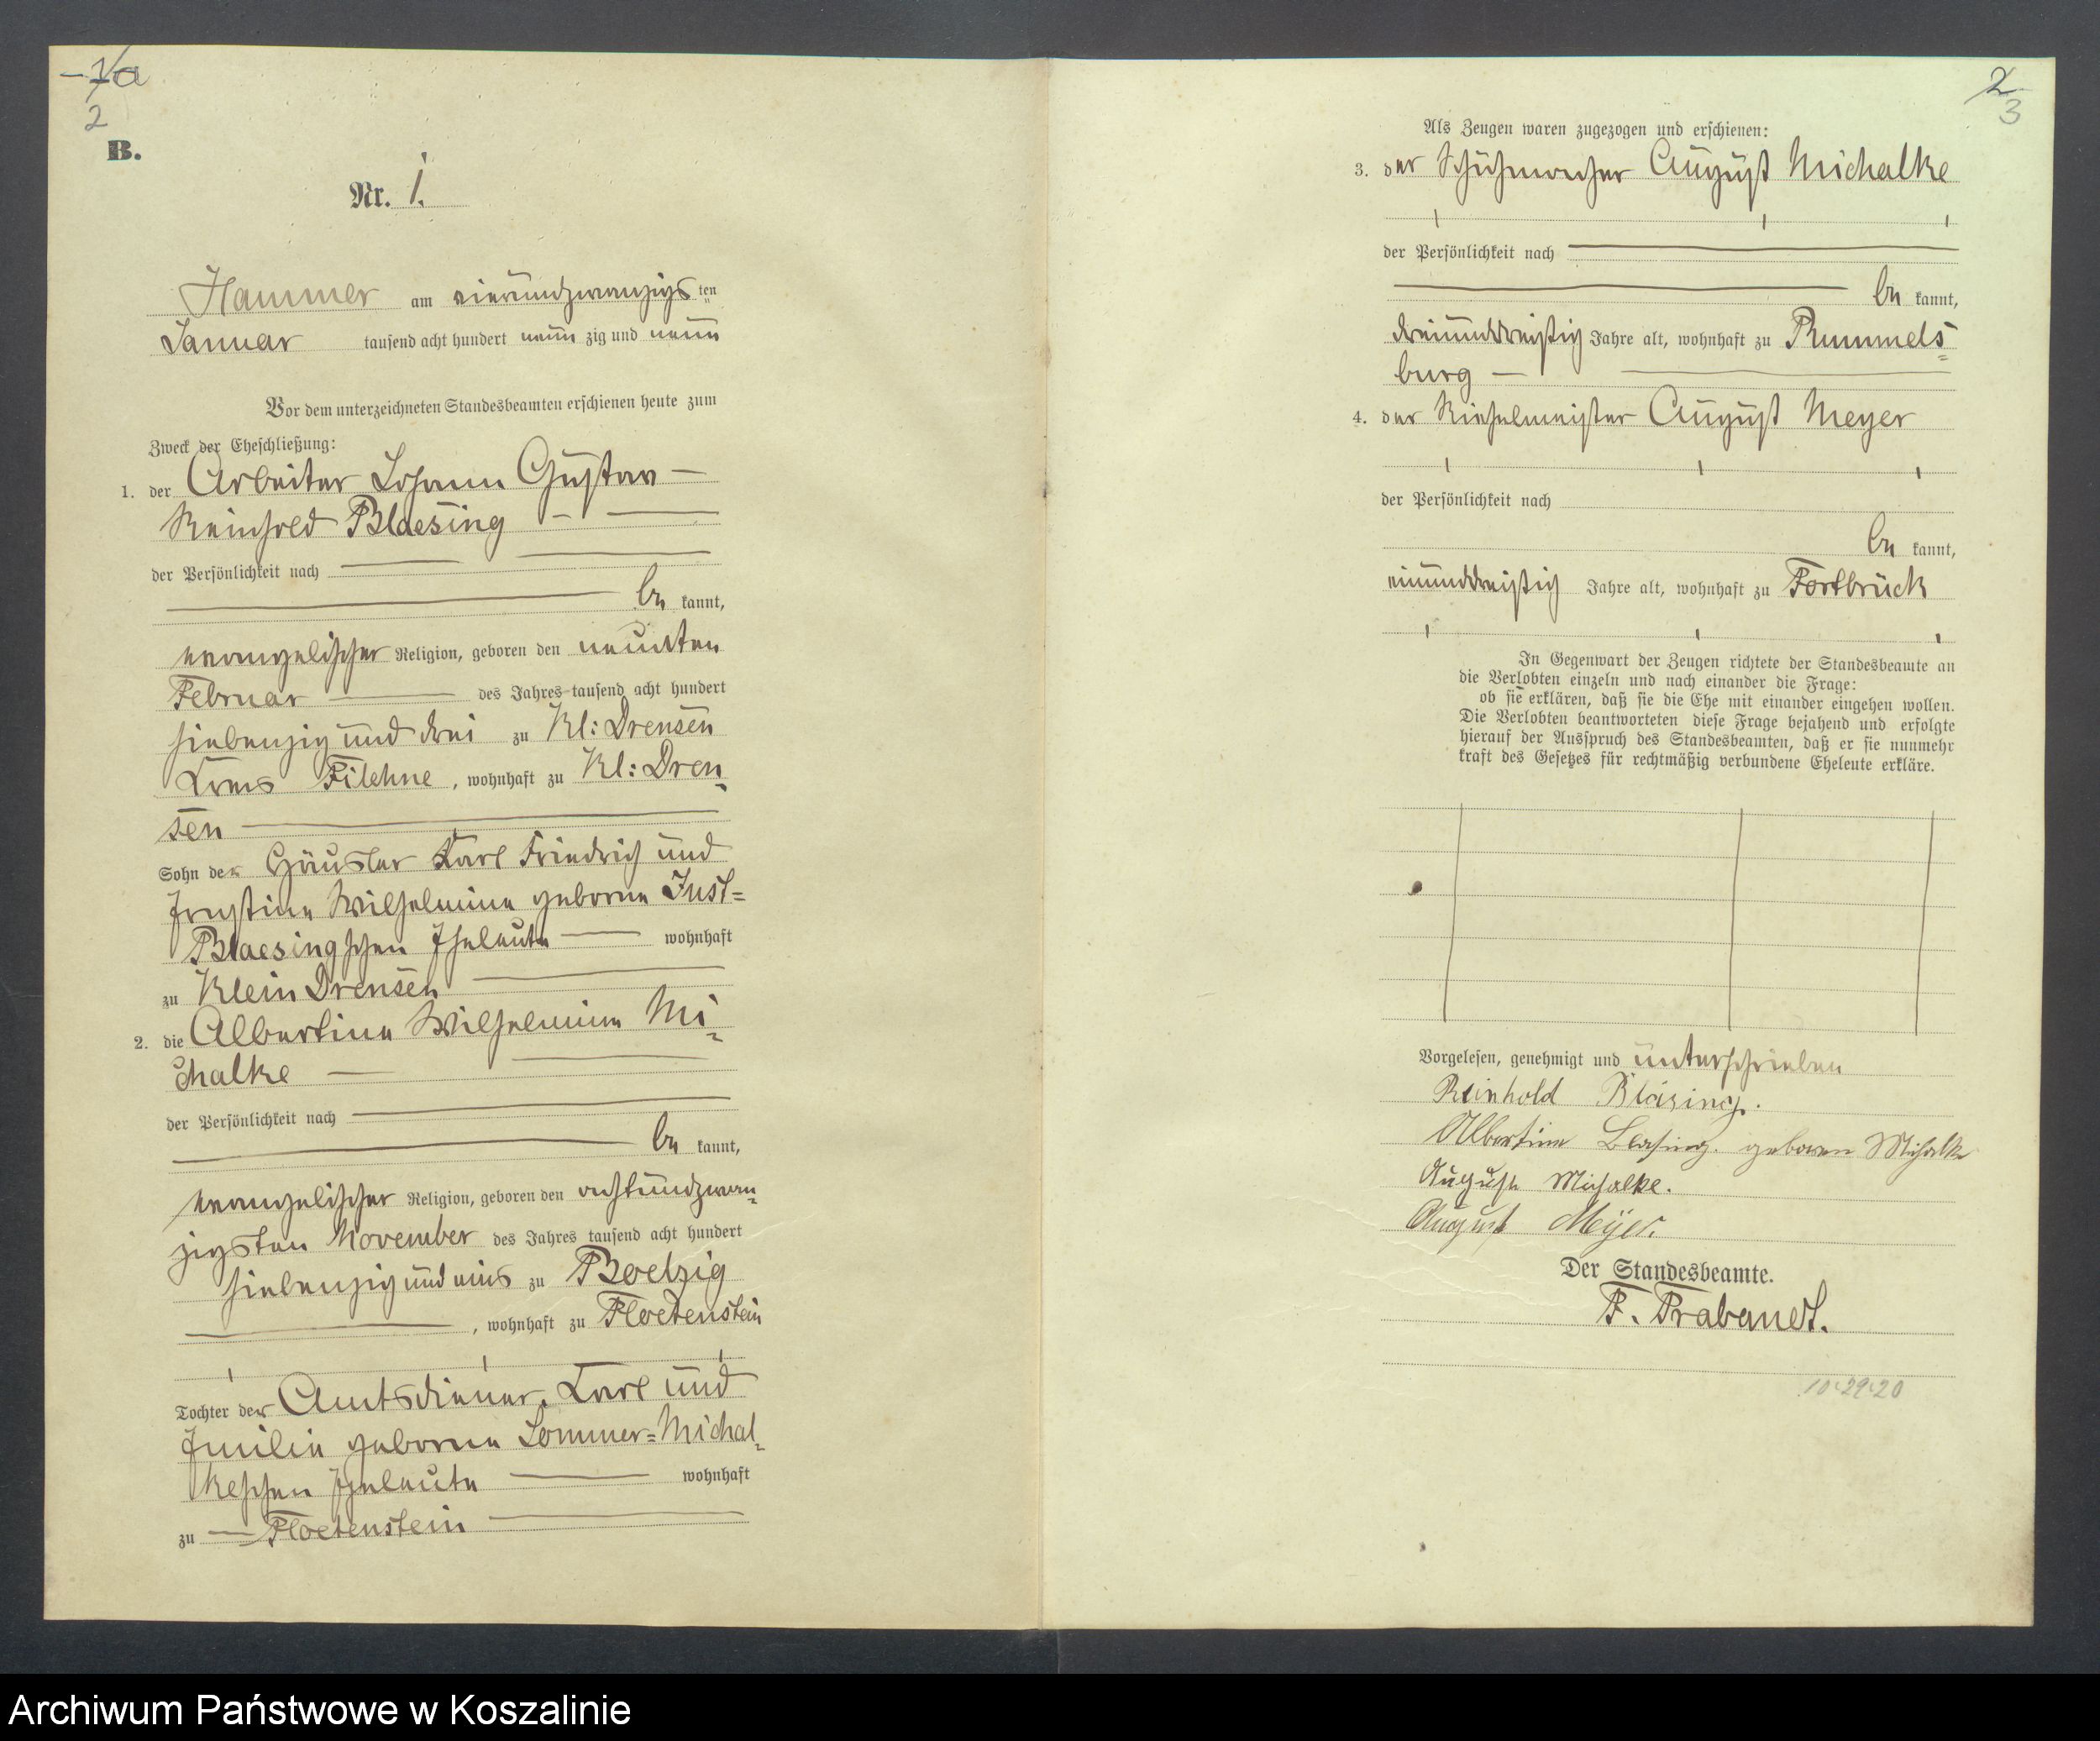 1a
2
B.
Nr. 1.
Hammer am vierundzwanzigsten
Januar tausend acht hundert neunzig und neun
Vor dem unterzeichneten Standesbeamten erschienen heute zum
Zweck der Eheschließung:
1. der Arbeiter Johann Gustav
Reinhold Blaesing
der Persönlichkeit nach
be kannt,
evangelischer Religion, geboren den neunten
Februar des Jahres tausend acht hundert
siebenzig und drei zu Kl: Drensen
Kreis Filehne, wohnhaft zu Kl: Dren-
sen
Sohn der Häusler Karl Friedrich und
Ernstine Wilhelmine geborne Just=
Blaesingschen Eheleute wohnhaft
zu Klein Drensen
2. die Albertine Wilhelmine Mi-
chalke
der Persönlichkeit nach
be kannt,
evangelischer Religion, geboren den achtundzwan-
zigsten November des Jahres tausend acht hundert
siebenzig und eins zu Boelzig
, wohnhaft zu Floetenstein
Tochter der Amtsdiener Karl und
Emilie geborne Sommer=Michal-
keschen Eheleute wohnhaft
zu Floetenstein
2
3
Als Zeugen waren zugezogen und erschienen:
3. der Schuhmacher August Michalke
der Persönlichkeit nach
be kannt,
dreiunddreißig Jahre alt, wohnhaft zu Rummels=
burg
4. der Rieselmeister August Meyer
der Persönlichkeit nach
be kannt,
einunddreißig Jahre alt, wohnhaft zu Fortbrück
In Gegenwart der Zeugen richtete der Standesbeamte an
die Verlobten einzeln und nach einander die Frage:
ob sie erklären, daß sie die Ehe mit einander eingehen wollen.
Die Verlobten beantworteten diese Frage bejahend und erfolgte
hierauf der Ausspruch des Standesbeamten, daß er sie nunmehr
kraft des Gesetzes für rechtmäßig verbundene Eheleute erkläre.
Vorgelesen, genehmigt und unterschrieben
Reinhold Bläsing.
Albertine Blasing. geboren Michalke
August Michalke.
August Meÿer.
Der Standesbeamte.
F. Prabandt.
10.29.20
Archiwum Państwowe w Koszalinie